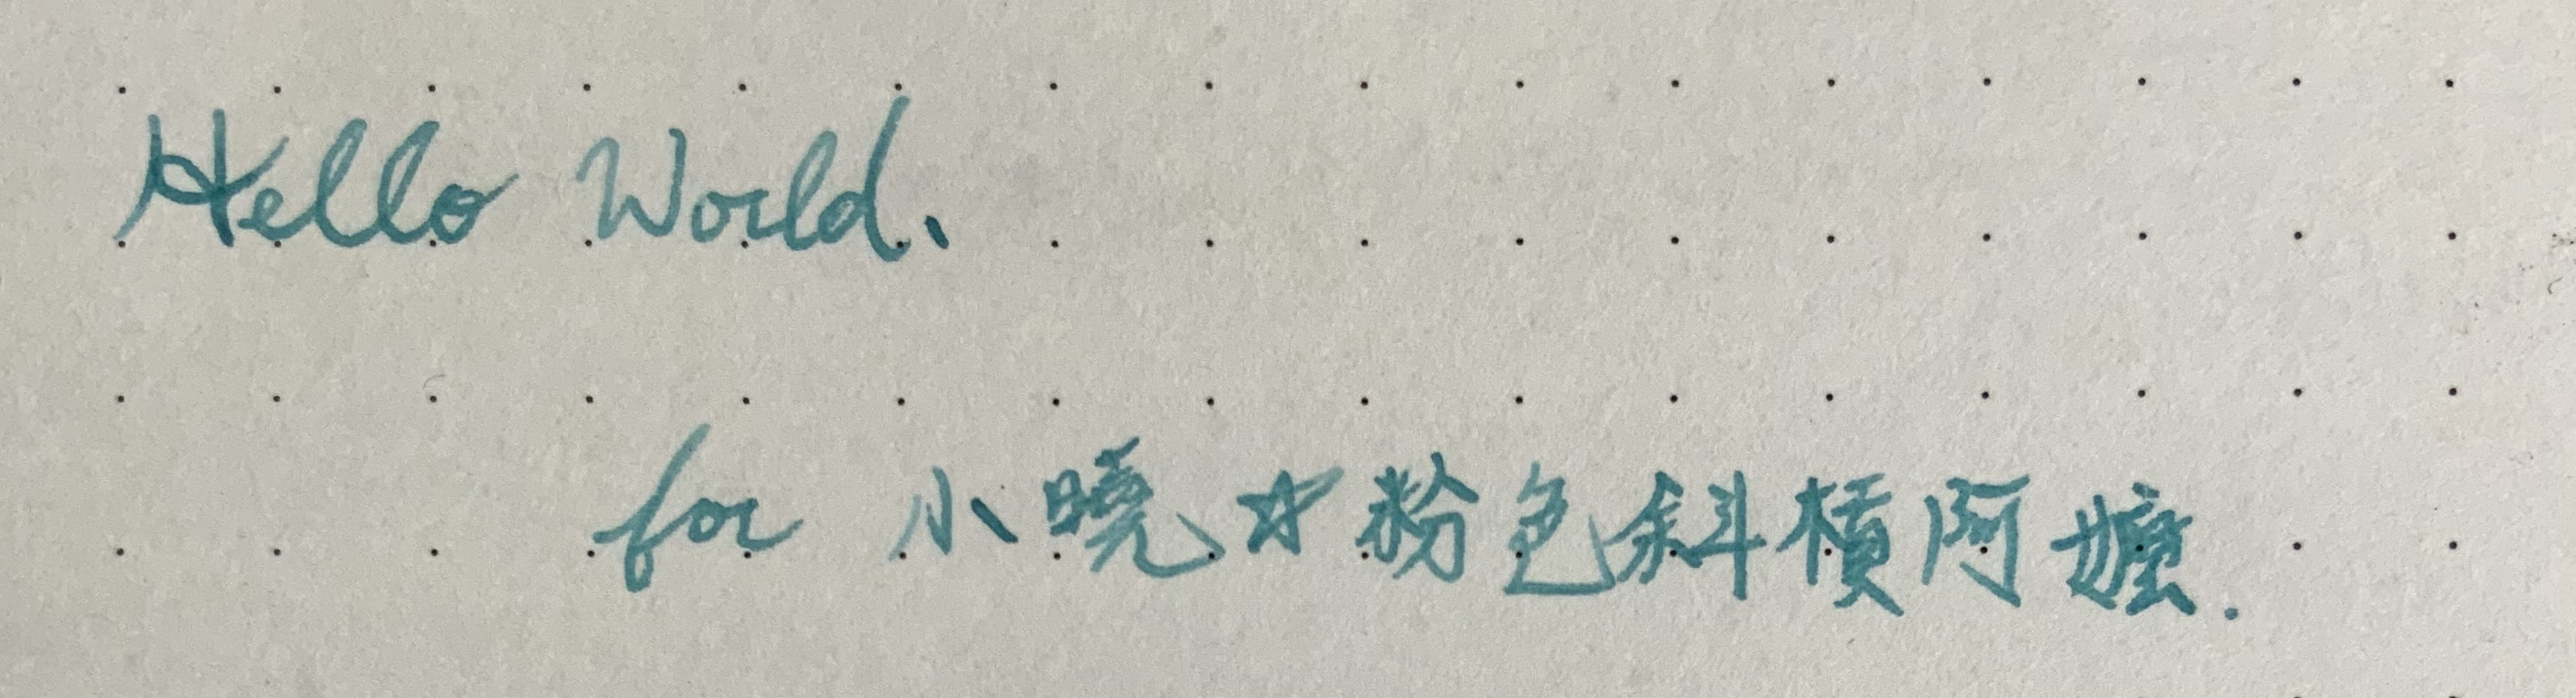 Hello World.
for 小曉☆粉色斜槓阿嬤.